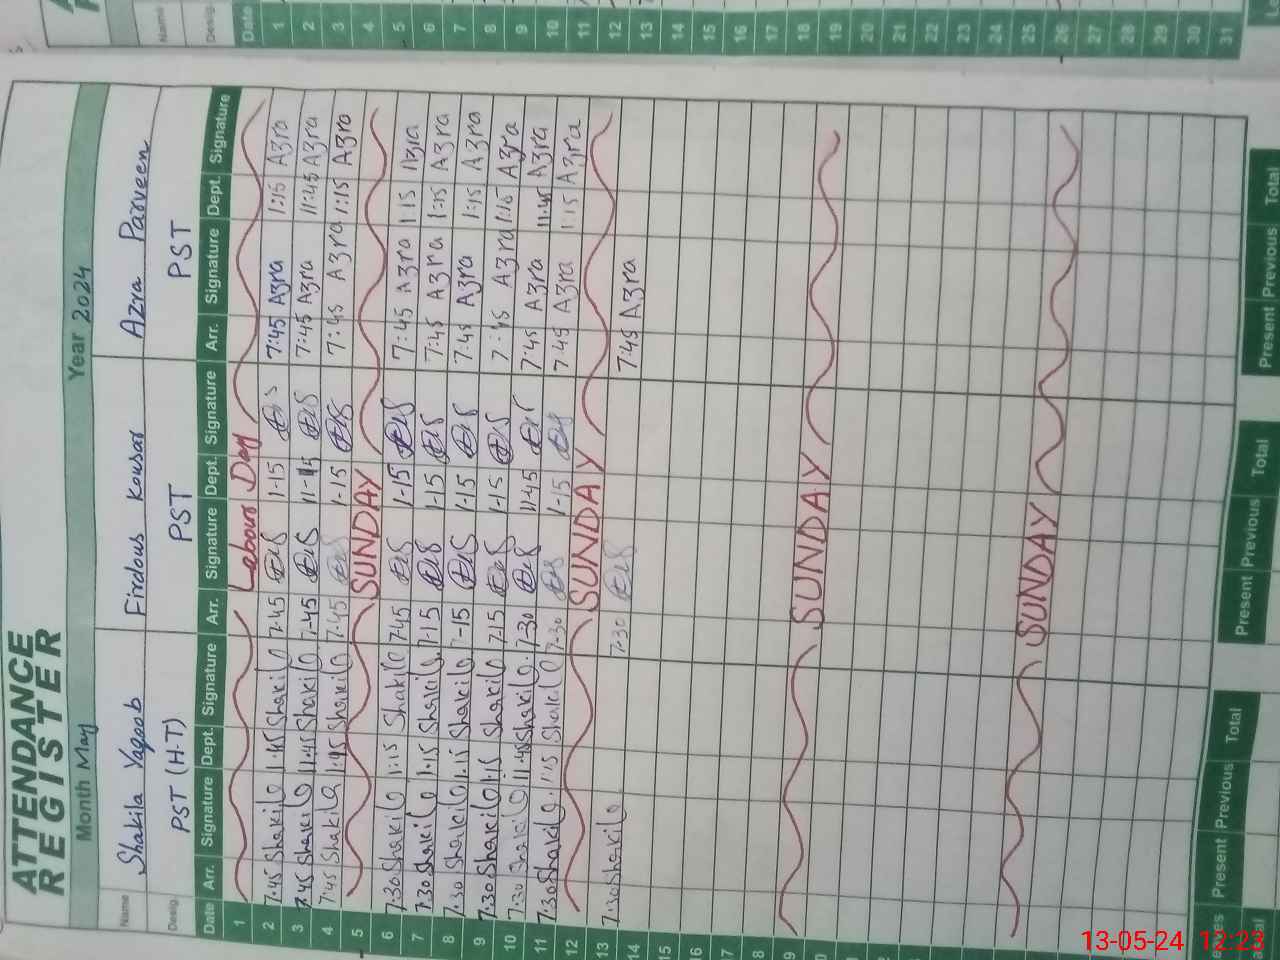 ATTENDANCE
REGISTER
Month May Year 2024
Name Shakila Yaqoob Firdous Kousar Azra Parveen
Desig. PST (H.T) PST PST
Date Arr. Signature Dept. Signature Arr. Signature Dept. Signature Arr. Signature Dept. Signature
1 Labour Day
2 7:45 Shakila 1:45 Shakila 7-45 1-15 7:45 Azra 1:15 Azra
3 7:45 Shakila 11:45 Shakila 7-45 11-45 7:45 Azra 11:45 Azra
4 7:45 Shakila 1:45 Shakila 7-45 1-15 7:45 Azra 1:15 Azra
5 SUNDAY
6 7:30 Shakila 1:15 Shakila 7-45 1-15 7:45 Azra 1:15 Azra
7 7:30 Shakila 1:15 Shakila 7-15 1-15 7:45 Azra 1:15 Azra
8 7:30 Shakila 1:15 Shakila 7-15 1-15 7:45 Azra 1:15 Azra
9 7:30 Shakila 1:15 Shakila 7-15 1-15 7:45 Azra 1:15 Azra
10 7:30 Shakila 11:45 Shakila 7-30 11-45 7:45 Azra 11:45 Azra
11 7:30 Shakila 1:15 Shakila 7-30 1-15 7:45 Azra 1:15 Azra
12 SUNDAY
13 7:30 Shakila 7:30 7:45 Azra
14
15
16
17
18
19 SUNDAY
20
21
22
23
24
25
26 SUNDAY
27
28
29
30
31
Present Previous Total Present Previous Total Present Previous Total
Name
Desig.
Date
1
2
3
4
5
6
7
8
9
10
11
12
13
14
15
16
17
18
19
20
21
22
23
24
25
26
27
28
29
30
31
13-05-24 12:23